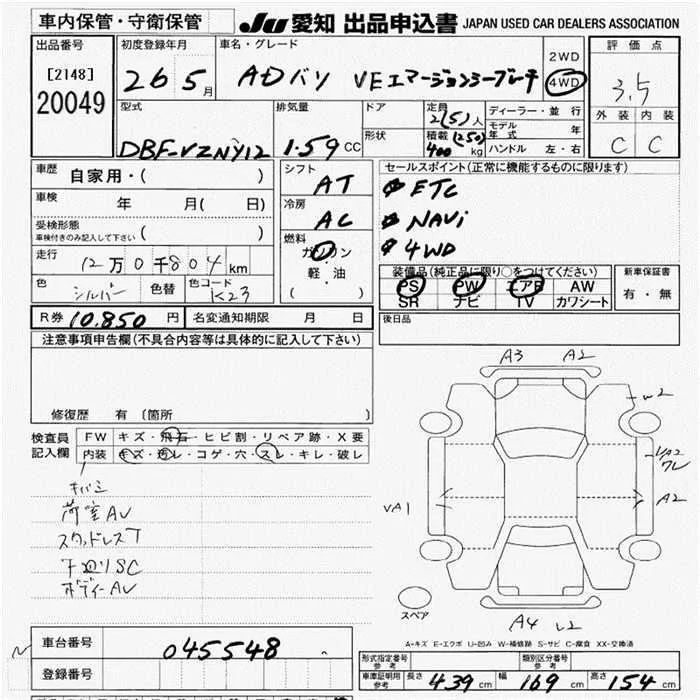 車内保管・守衛保管
JU 愛知 出品申込書 JAPAN USED CAR DEALERS ASSOCIATION
出品番号
[2148]
20049
初度登録年月
26 5月
車名・グレード
ADバン VEエマージョンシーブレーキ
2WD
4WD
評価点
3.5
外装 内装
C C
型式
DBF-VZNY12
排気量
1.59 CC
ドア
形状
定員
2(5)人
積載
(250)
400 kg
ディーラー・並行
モデル年式 年
ハンドル 左・右
車歴
自家用・( )
車検
年 月( 日)
受検形態
車検付きのみ記入して下さい ( )
走行
12万0千804km
色
シルバー
色替
色コード
K23
シフト
AT
冷房
AC
燃料
ガソリン
・
軽・油
( )
セールスポイント(正常に機能するものに限ります)
ETC
NAVi
4WD
装備品(純正品に限り○をつけてください)
PS PW エアB AW
SR ナビ TV カワシート
新車保証書
有・無
R券 10,850 円
名変通知期限 月 日
後日品
注意事項申告欄(不具合内容等は具体的に記入して下さい)
修復歴 有 〔箇所 〕
検査員
記入欄
FW キズ・飛石・ヒビ割・リペア跡・X要
内装 キズ・汚レ・コゲ・穴・スレ・キレ・破レ
キバミ
荷室AU
スタッドレスT
下廻りSC
ボディーAU
A3 A2
W2
A2
VA1
スペア
A4 L2
A-キズ E-エクボ U-凹み W-補修跡 S-サビ C-腐食 XX-交換済
車台番号
045548
登録番号
形式指定番号
参考
類別区分番号
参考
車庫証明用
参考
長さ 439 cm 幅 169 cm 高さ 154 cm